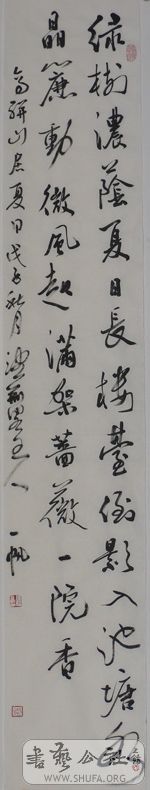 绿樹濃蔭夏日長樓臺倒影入池塘水
晶簾動微風起滿架薔薇一院香
高駢山居夏日戊子秋月主人一帆
書藝公社
WWW.SHUFA.ORG